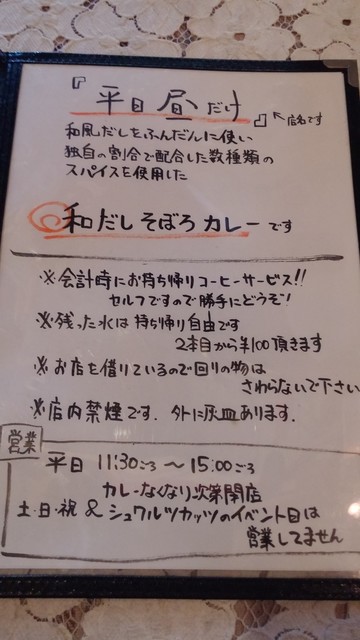 『平日 昼 だけ』
←店名です
和風だしをふんだんに使い
独自の割合で配合した数種類の
スパイスを使用した
和だしそぼろカレーです
※会計時にお持ち帰りコーヒーサービス!!
セルフですので勝手にどうぞ!
※残った水は持ち帰り自由です
2本目から¥100頂きます
※お店を借りているので回りの物は
さわらないで下さい
※店内禁煙です. 外に灰皿あります.
営業
平日 11:30ごろ〜15:00ごろ
カレーなくなり次第閉店
土・日・祝 & シュワルツカッツのイベント日は
営業してません